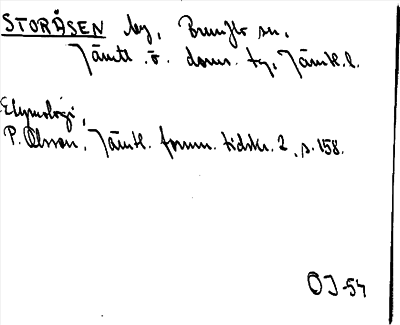 STORÅSEN by, Brunflo sn,
Jämtl. ö. doms. tg, Jämtl. l.
Etymologi,
P. Olsson, Jämtl. fornm. tidskr. 2, s. 158.
OJ-54